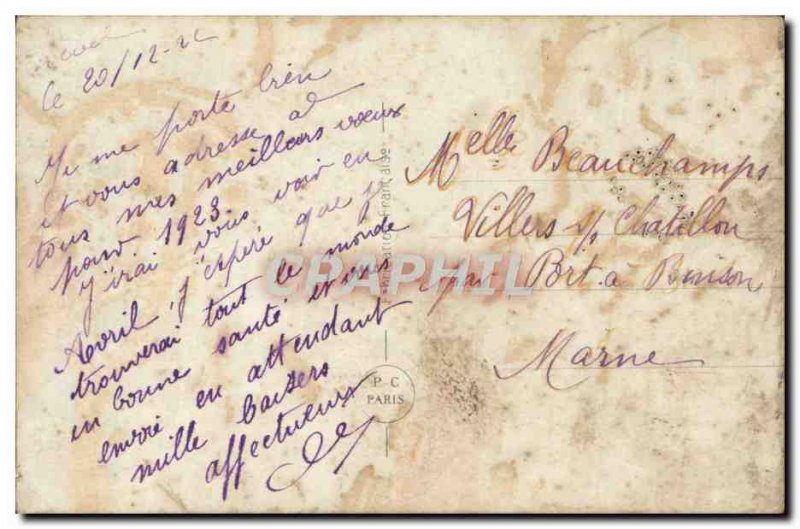 le 20/12-22
Je me porte bien
et vous adresse à
tous mes meilleurs vœux
pour 1923
j'irai vous voir en
Avril, j'espère que je
trouverai tout le monde
en bonne santé et vous
envoie en attendant
mille baisers
affectueux
Melle Beauchamps
Villers s/ Chatillon
par Port à Binson
Marne
Fabrication Française
P C
PARIS
CPRAPHIL